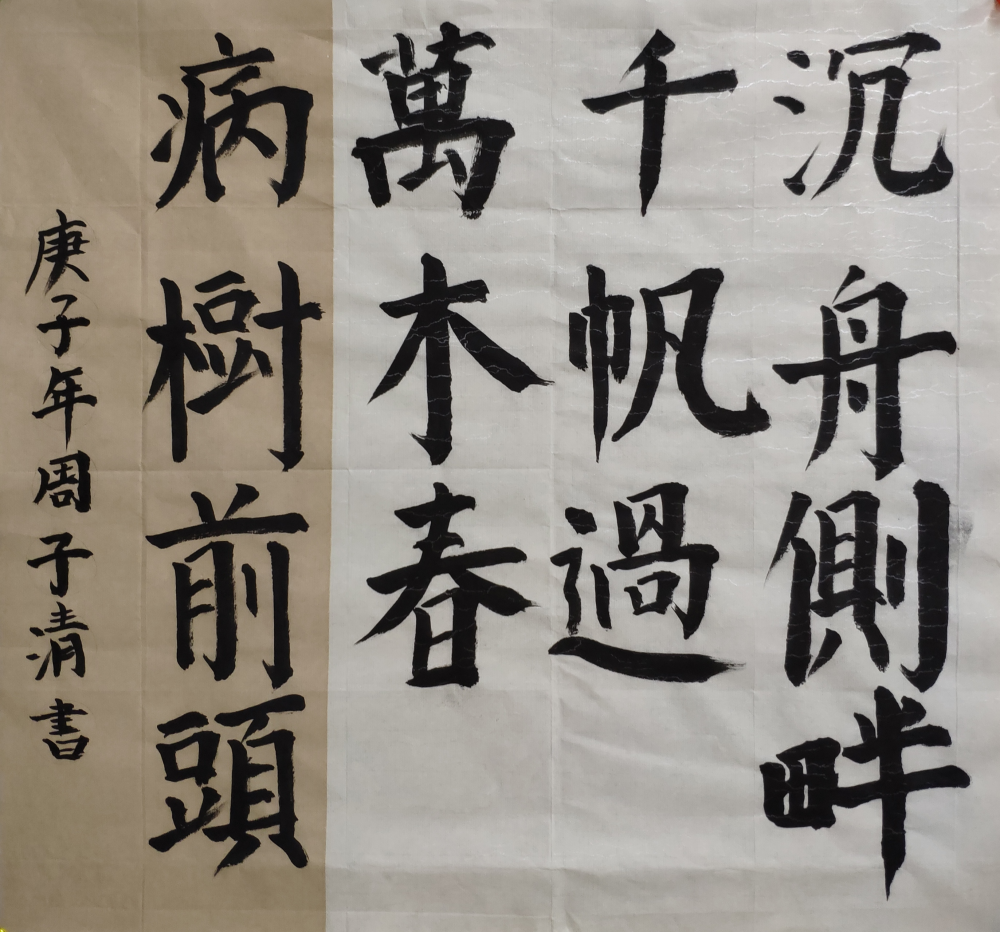 沉舟側畔
千帆過
萬木春
病樹前頭
庚子年周子清書